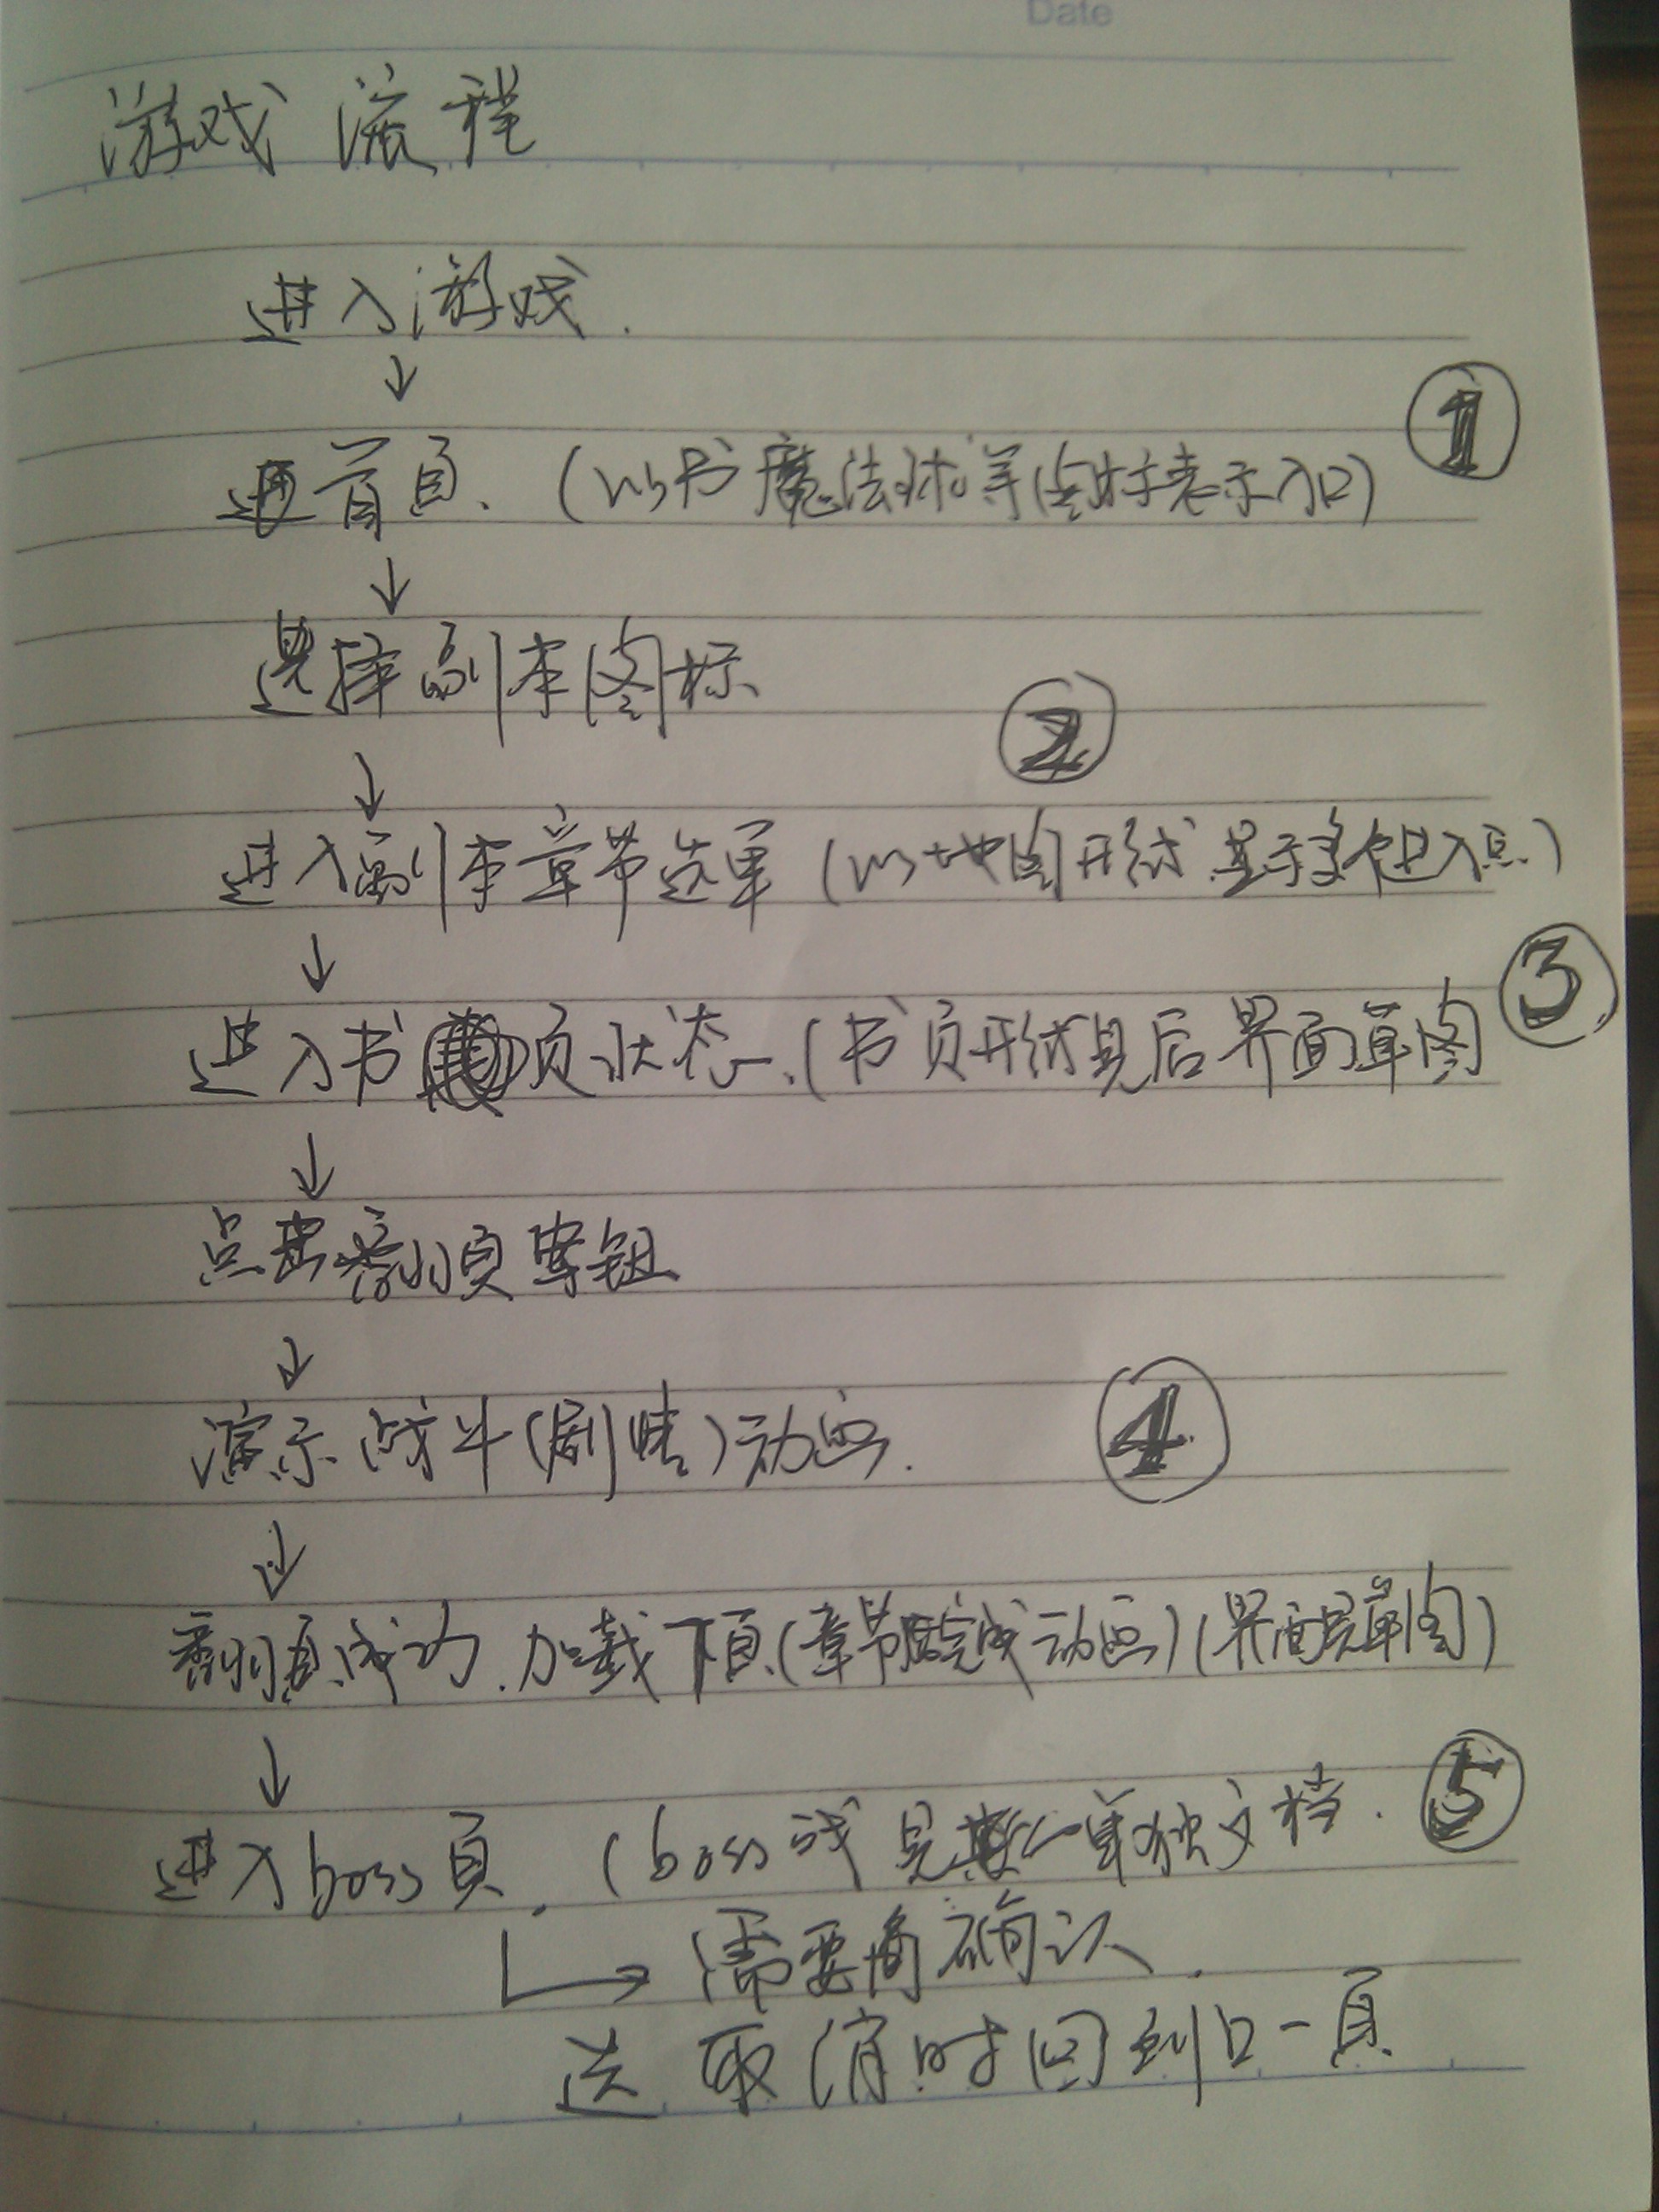 Date
游戏 流程
进入游戏.
↓
首页、(以书 魔法球等图标表示入口) ①
↓
选择副本图标
↓ ②
进入副本章节选单 (以地图形式 显示多个进入点)
↓ ③
进入书页状态、(书页形式见后界面草图
↓
点击翻页按钮
↓
演示战斗(剧情)动画. ④
↓
翻页成功.加载下页(章节完成动画)(界面见草图)
↓ ⑤
进入boss页.(boss战见单独文档.
→需要确认.
选 取消时回到上一页